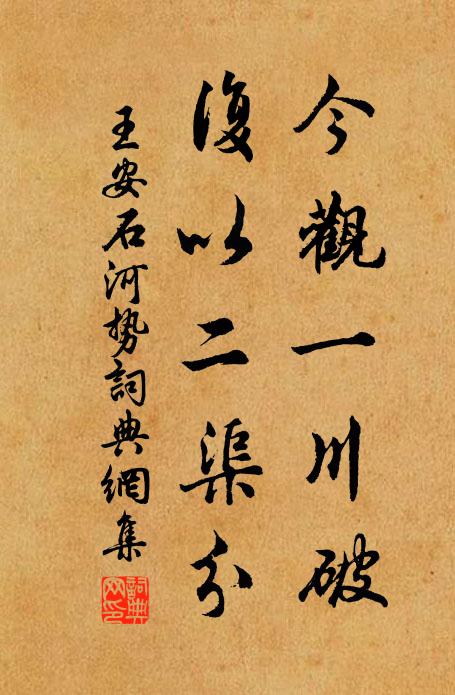 今觀一川破
復以二渠分
王安石河勢詞典網集
詞典網印